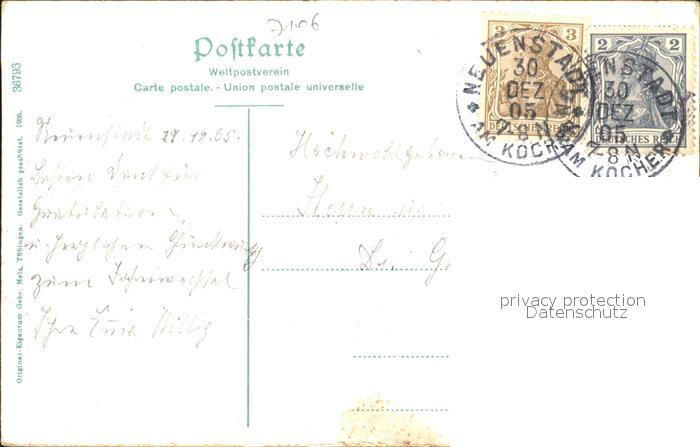 7106
Postkarte
Weltpostverein
Carte postale. - Union postale universelle
36793
Original-Eigentum Gebr. Metz, Tübingen. Gesetzlich geschützt. 1905.
3 3
DEUTSCHES REICH
2 2
DEUTSCHES REICH
NEUENSTADT
30
DEZ
05
7-8 N
AM KOCHER
NEUENSTADT
30
DEZ
05
7-8 N
AM KOCHER
Neuenstadt 29.12.05.
Besten Dank für
Gratulation,
u. herzlichen Glückwunsch
zum Jahreswechsel
Ihre
Hochwohlgeboren
Herrn
Dr. G
privacy protection
Datenschutz